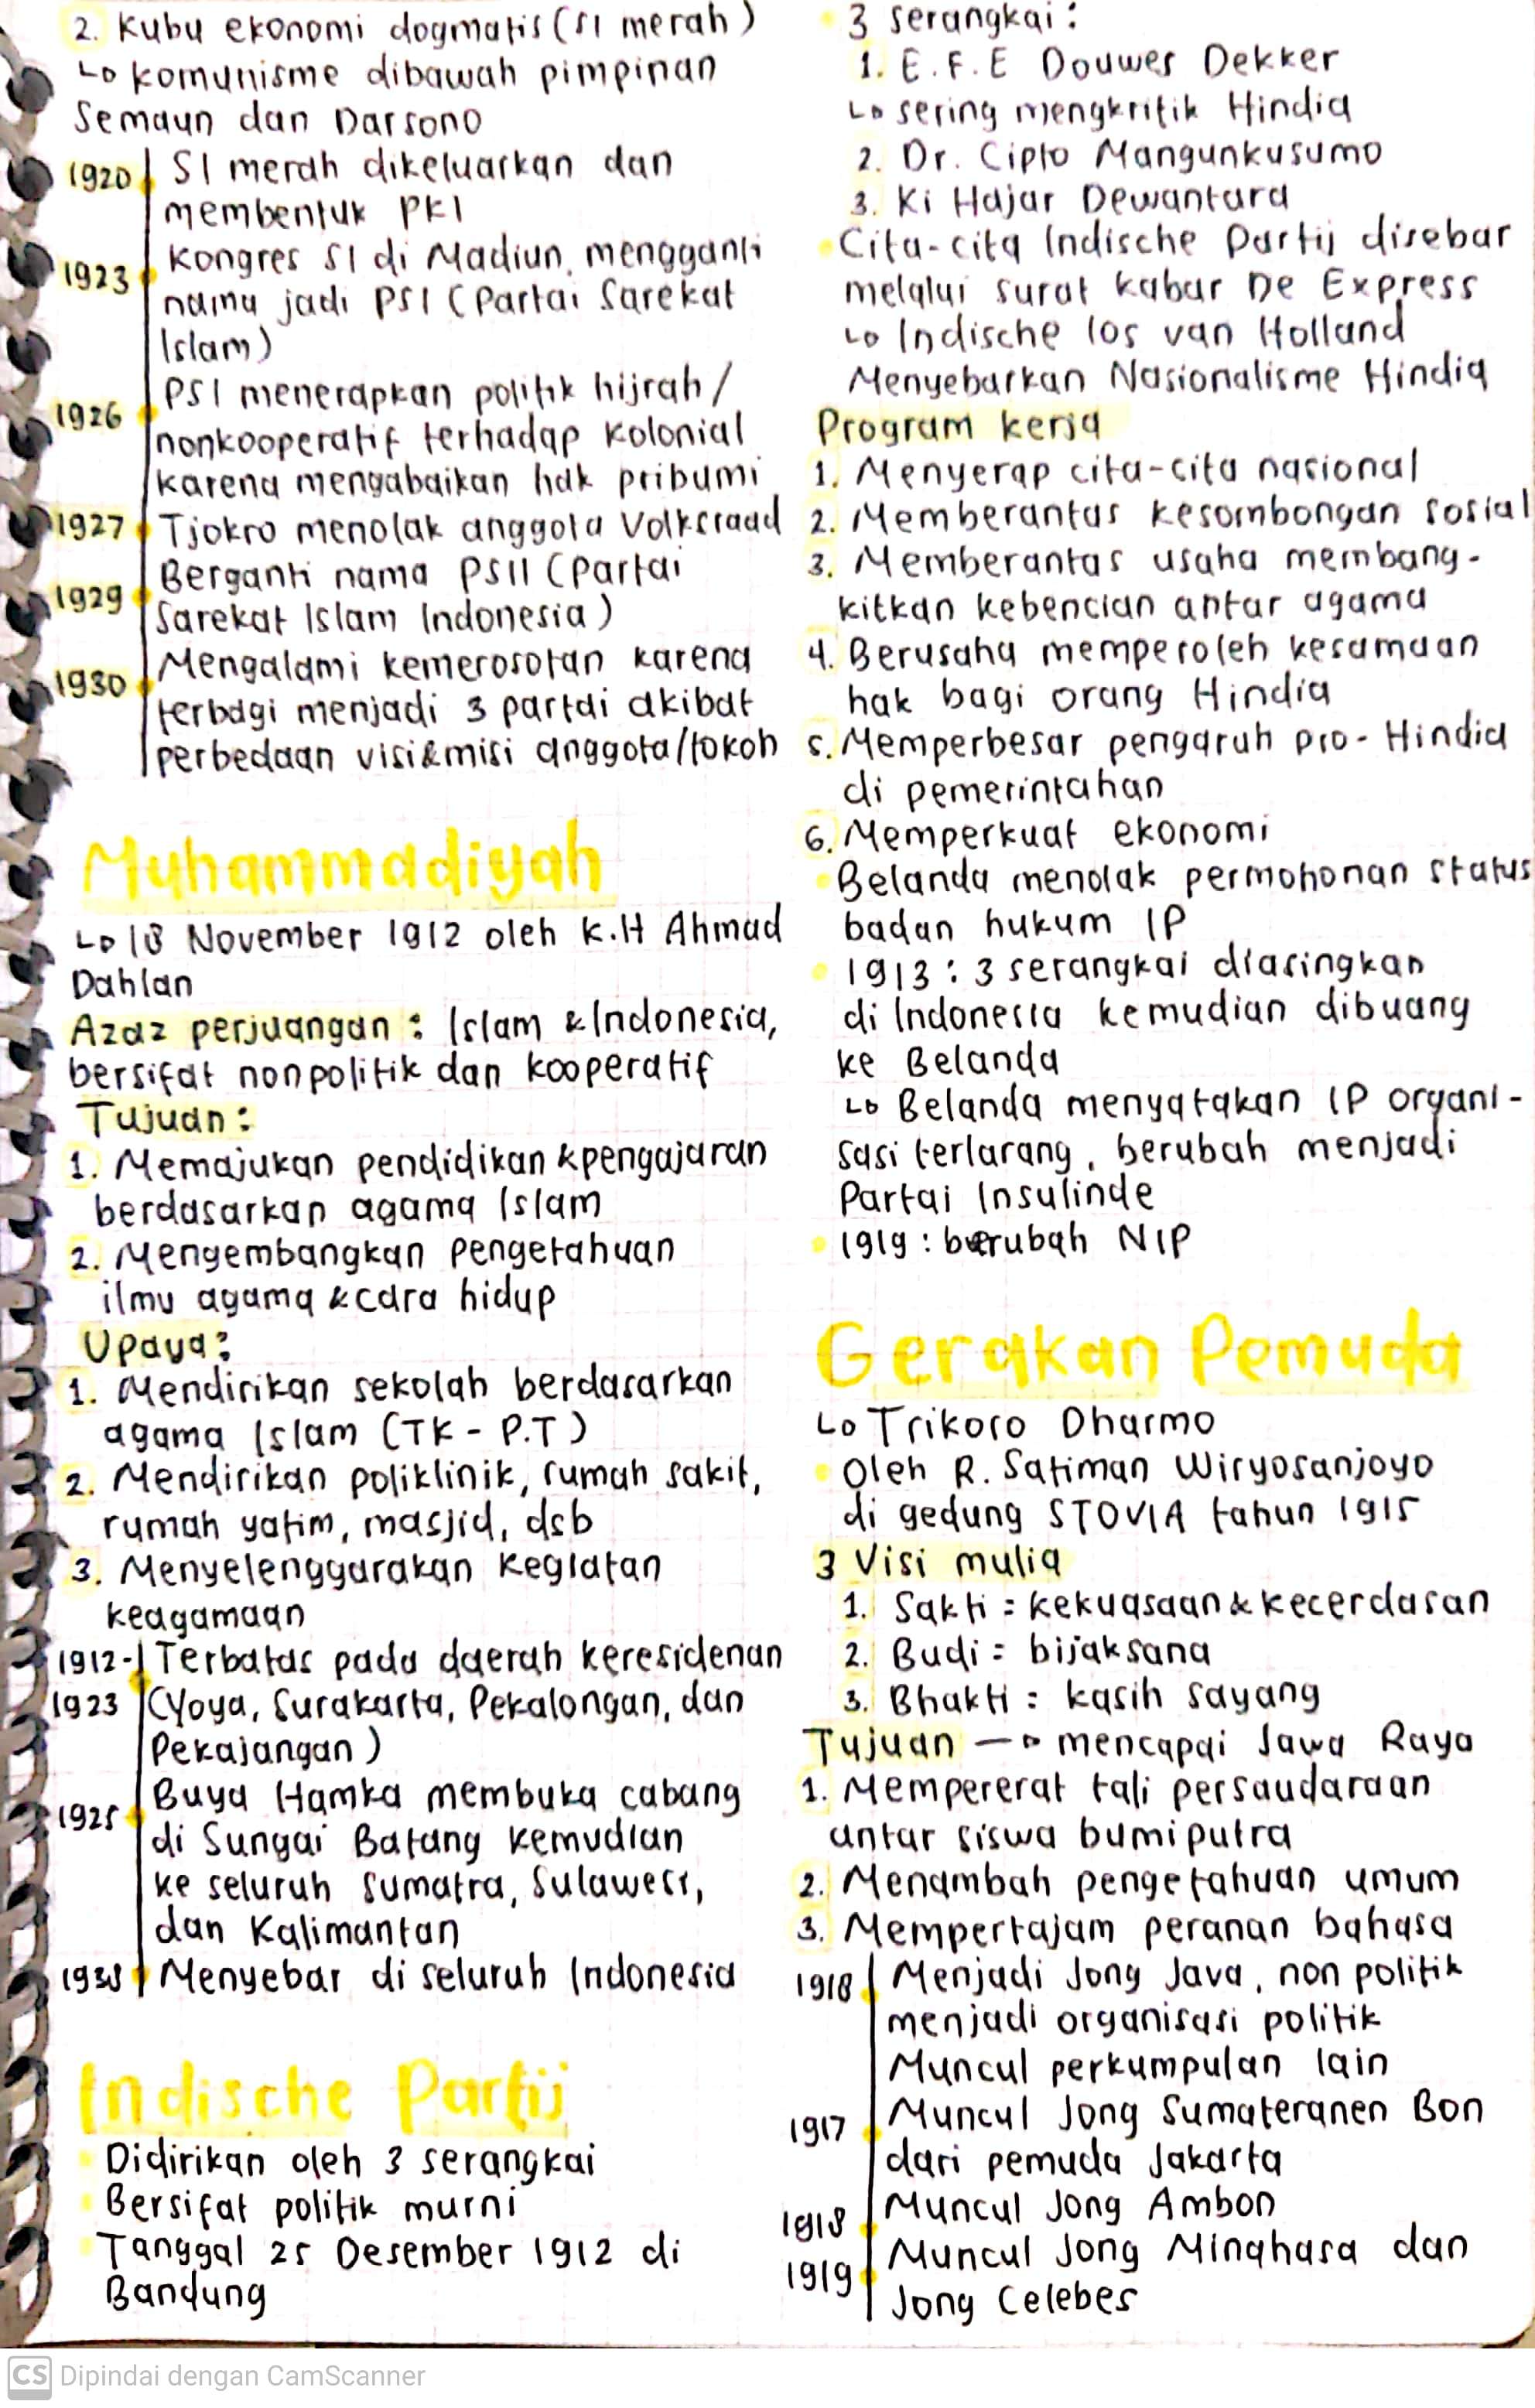 2. Kubu ekonomi dogmatis (SI merah)
↳ komunisme dibawah pimpinan
Semaun dan Darsono
1920 SI merah dikeluarkan dan
membentuk PKI
1923 Kongres SI di Madiun, mengganti
nama jadi PSI (Partai Sarekat
Islam)
1926 PSI menerapkan politik hijrah/
nonkooperatif terhadap kolonial
karena mengabaikan hak pribumi
1927 Tjokro menolak anggota Volksraad
1929 Berganti nama PSII (Partai
Sarekat Islam Indonesia)
1930 Mengalami kemerosotan karena
terbagi menjadi 3 partai akibat
perbedaan visi&misi anggota/tokoh
Muhammadiyah
↳ 18 November 1912 oleh K.H Ahmad
Dahlan
Azaz perjuangan : Islam & Indonesia,
bersifat nonpolitik dan kooperatif
Tujuan :
1. Memajukan pendidikan & pengajaran
berdasarkan agama Islam
2. Mengembangkan pengetahuan
ilmu agama & cara hidup
Upaya :
1. Mendirikan sekolah berdasarkan
agama Islam (TK - P.T)
2. Mendirikan poliklinik, rumah sakit,
rumah yatim, masjid, dsb
3. Menyelenggarakan kegiatan
keagamaan
1912- Terbatas pada daerah keresidenan
1923 (Yoya, Surakarta, Pekalongan, dan
Pekajangan)
1925 Buya Hamka membuka cabang
di Sungai Batang kemudian
ke seluruh Sumatra, Sulawesi,
dan Kalimantan
Menyebar di seluruh Indonesia
Indische Partij
• Didirikan oleh 3 serangkai
• Bersifat politik murni
• Tanggal 25 Desember 1912 di
Bandung
• 3 serangkai :
1. E.F.E Douwes Dekker
↳ sering mengkritik Hindia
2. Dr. Cipto Mangunkusumo
3. Ki Hajar Dewantara
• Cita-cita Indische Partij disebar
melalui surat kabar De Express
↳ Indische los van Holland
Menyebarkan Nasionalisme Hindia
Program kerja
1. Menyerap cita-cita nasional
2. Memberantas kesombongan sosial
3. Memberantas usaha membang-
kitkan kebencian antar agama
4. Berusaha memperoleh kesamaan
hak bagi orang Hindia
5. Memperbesar pengaruh pro-Hindia
di pemerintahan
6. Memperkuat ekonomi
• Belanda menolak permohonan status
badan hukum IP
• 1913 : 3 serangkai diasingkan
di Indonesia kemudian dibuang
ke Belanda
↳ Belanda menyatakan IP organi-
sasi terlarang, berubah menjadi
Partai Insulinde
• 1919 : berubah NIP
Gerakan Pemuda
↳ Trikoro Dharmo
• Oleh R. Satiman Wiryosanjoyo
di gedung STOVIA tahun 1915
3 Visi mulia
1. Sakti = kekuasaan & kecerdasan
2. Budi = bijaksana
3. Bhakti = kasih sayang
Tujuan → mencapai Jawa Raya
1. Mempererat tali persaudaraan
antar siswa bumiputra
2. Menambah pengetahuan umum
3. Mempertajam peranan bahasa
1918 Menjadi Jong Java, non politik
menjadi organisasi politik
Muncul perkumpulan lain
1917 Muncul Jong Sumateranen Bon
dari pemuda Jakarta
1918 Muncul Jong Ambon
1919 Muncul Jong Minahasa dan
Jong Celebes
CS Dipindai dengan CamScanner